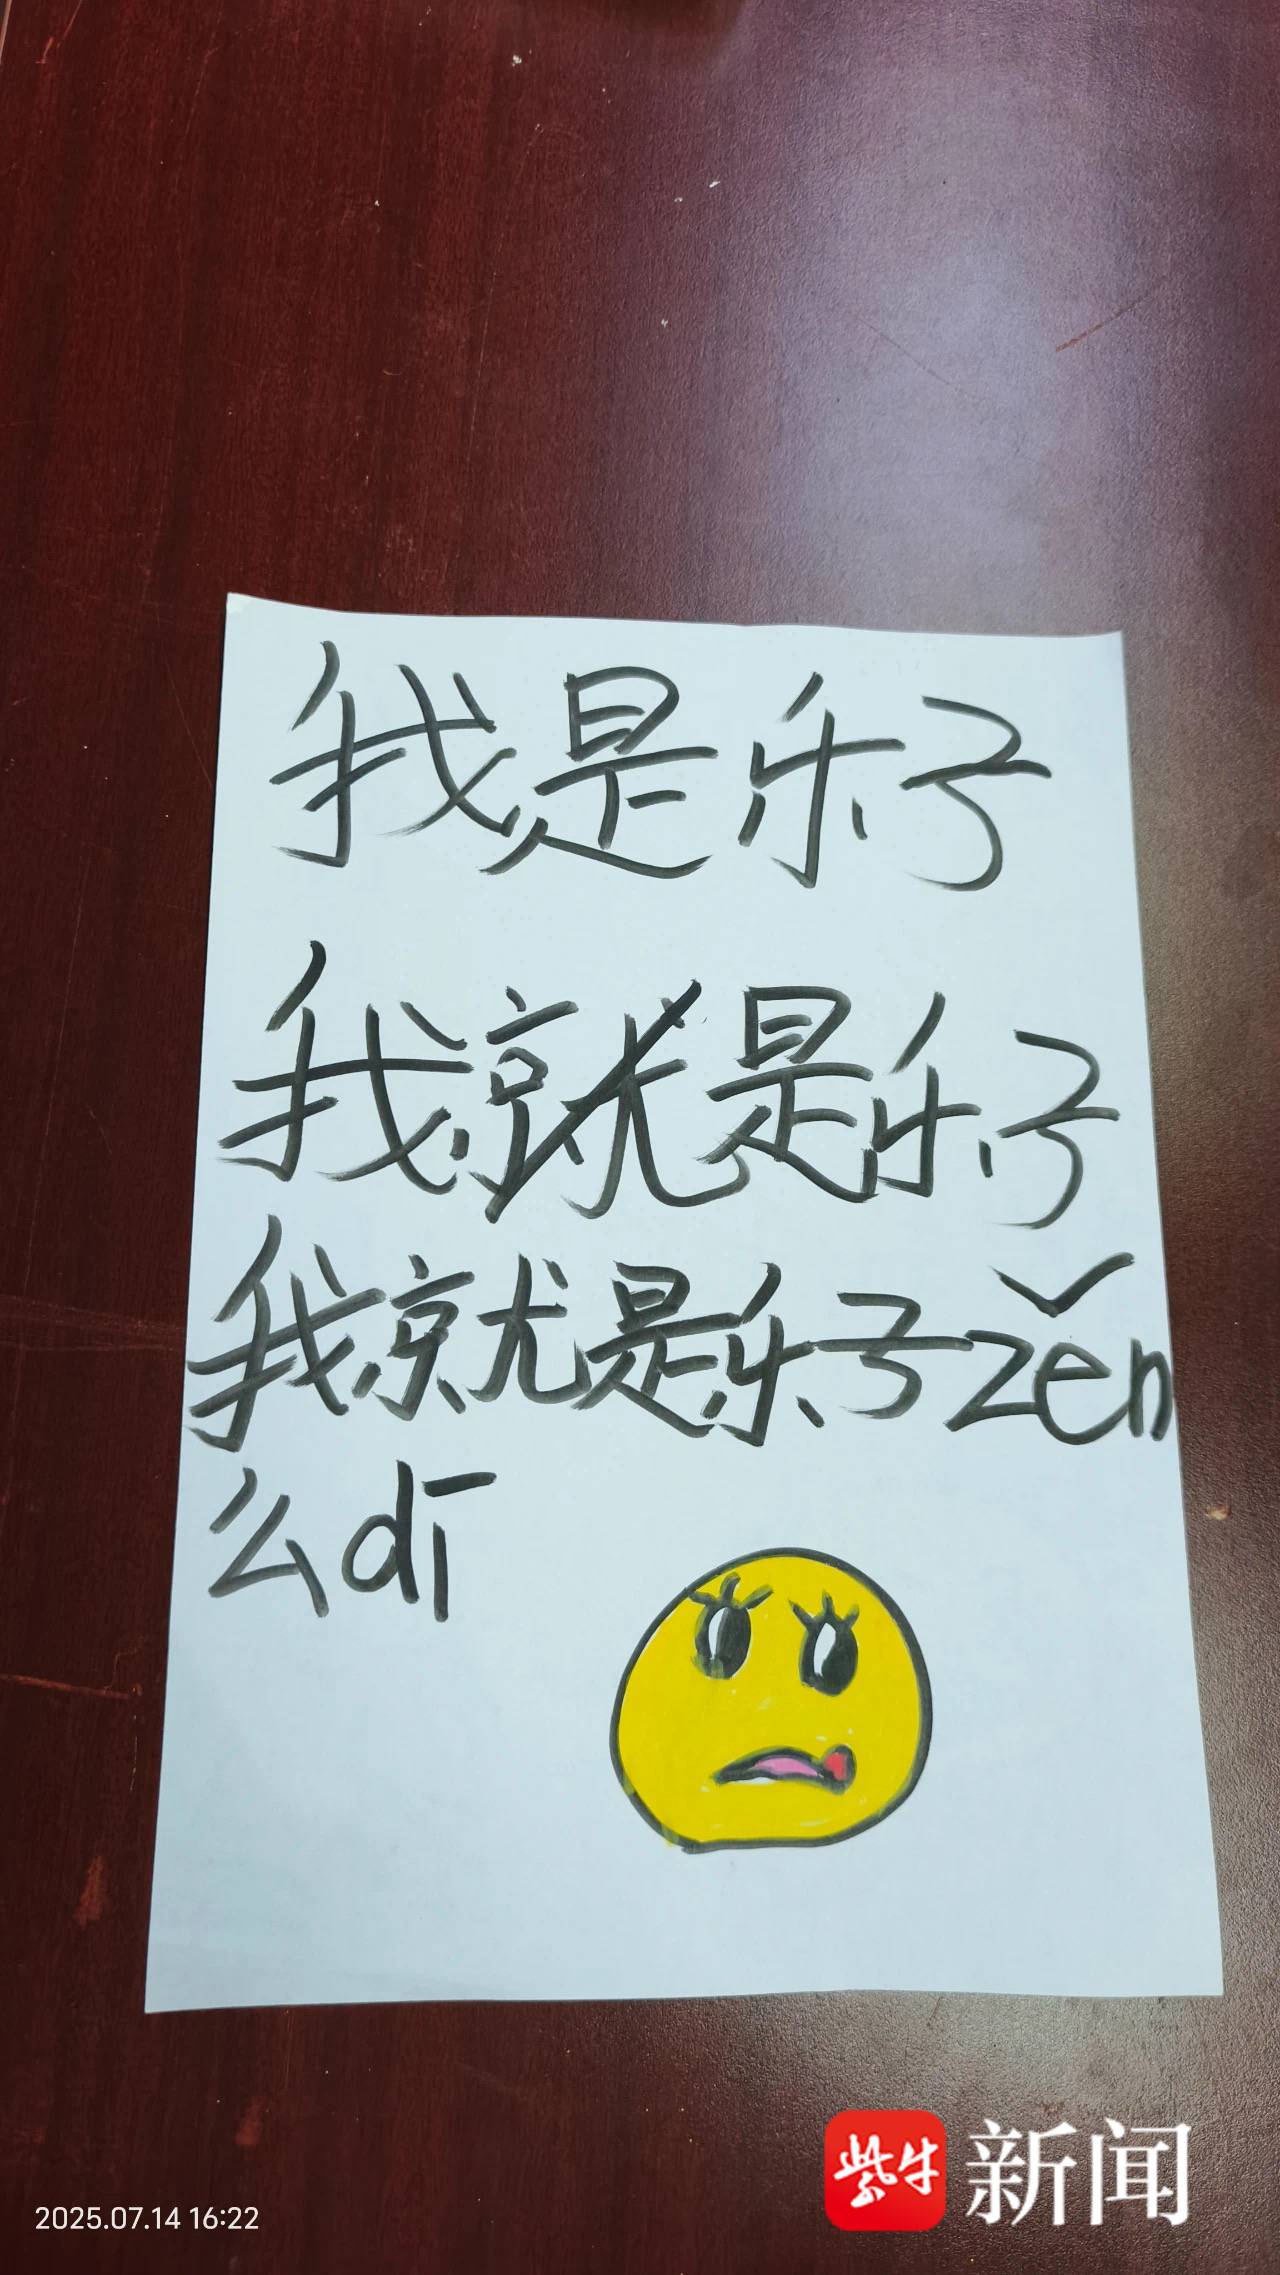 我是乐子
我就是乐子
我就是乐子zěn
么dī
紫牛 新闻
2025.07.14 16:22